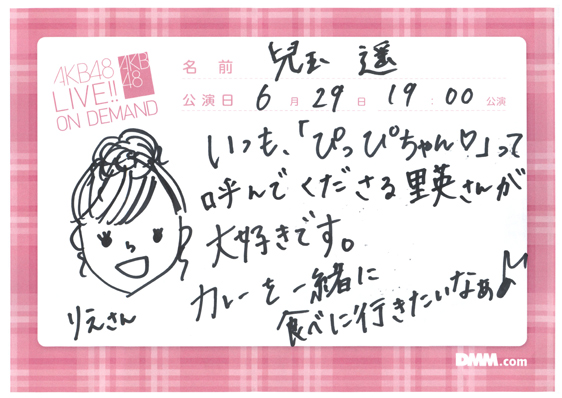 AKB48
LIVE!!
ON DEMAND
AKB
48
名前 兒玉 遥
公演日 6月29日 19:00公演
いつも、「ぴっぴちゃん♡」って
呼んでくださる里英さんが
大好きです。
カレーを一緒に
食べに行きたいなぁ♪
りえさん
DMM.com